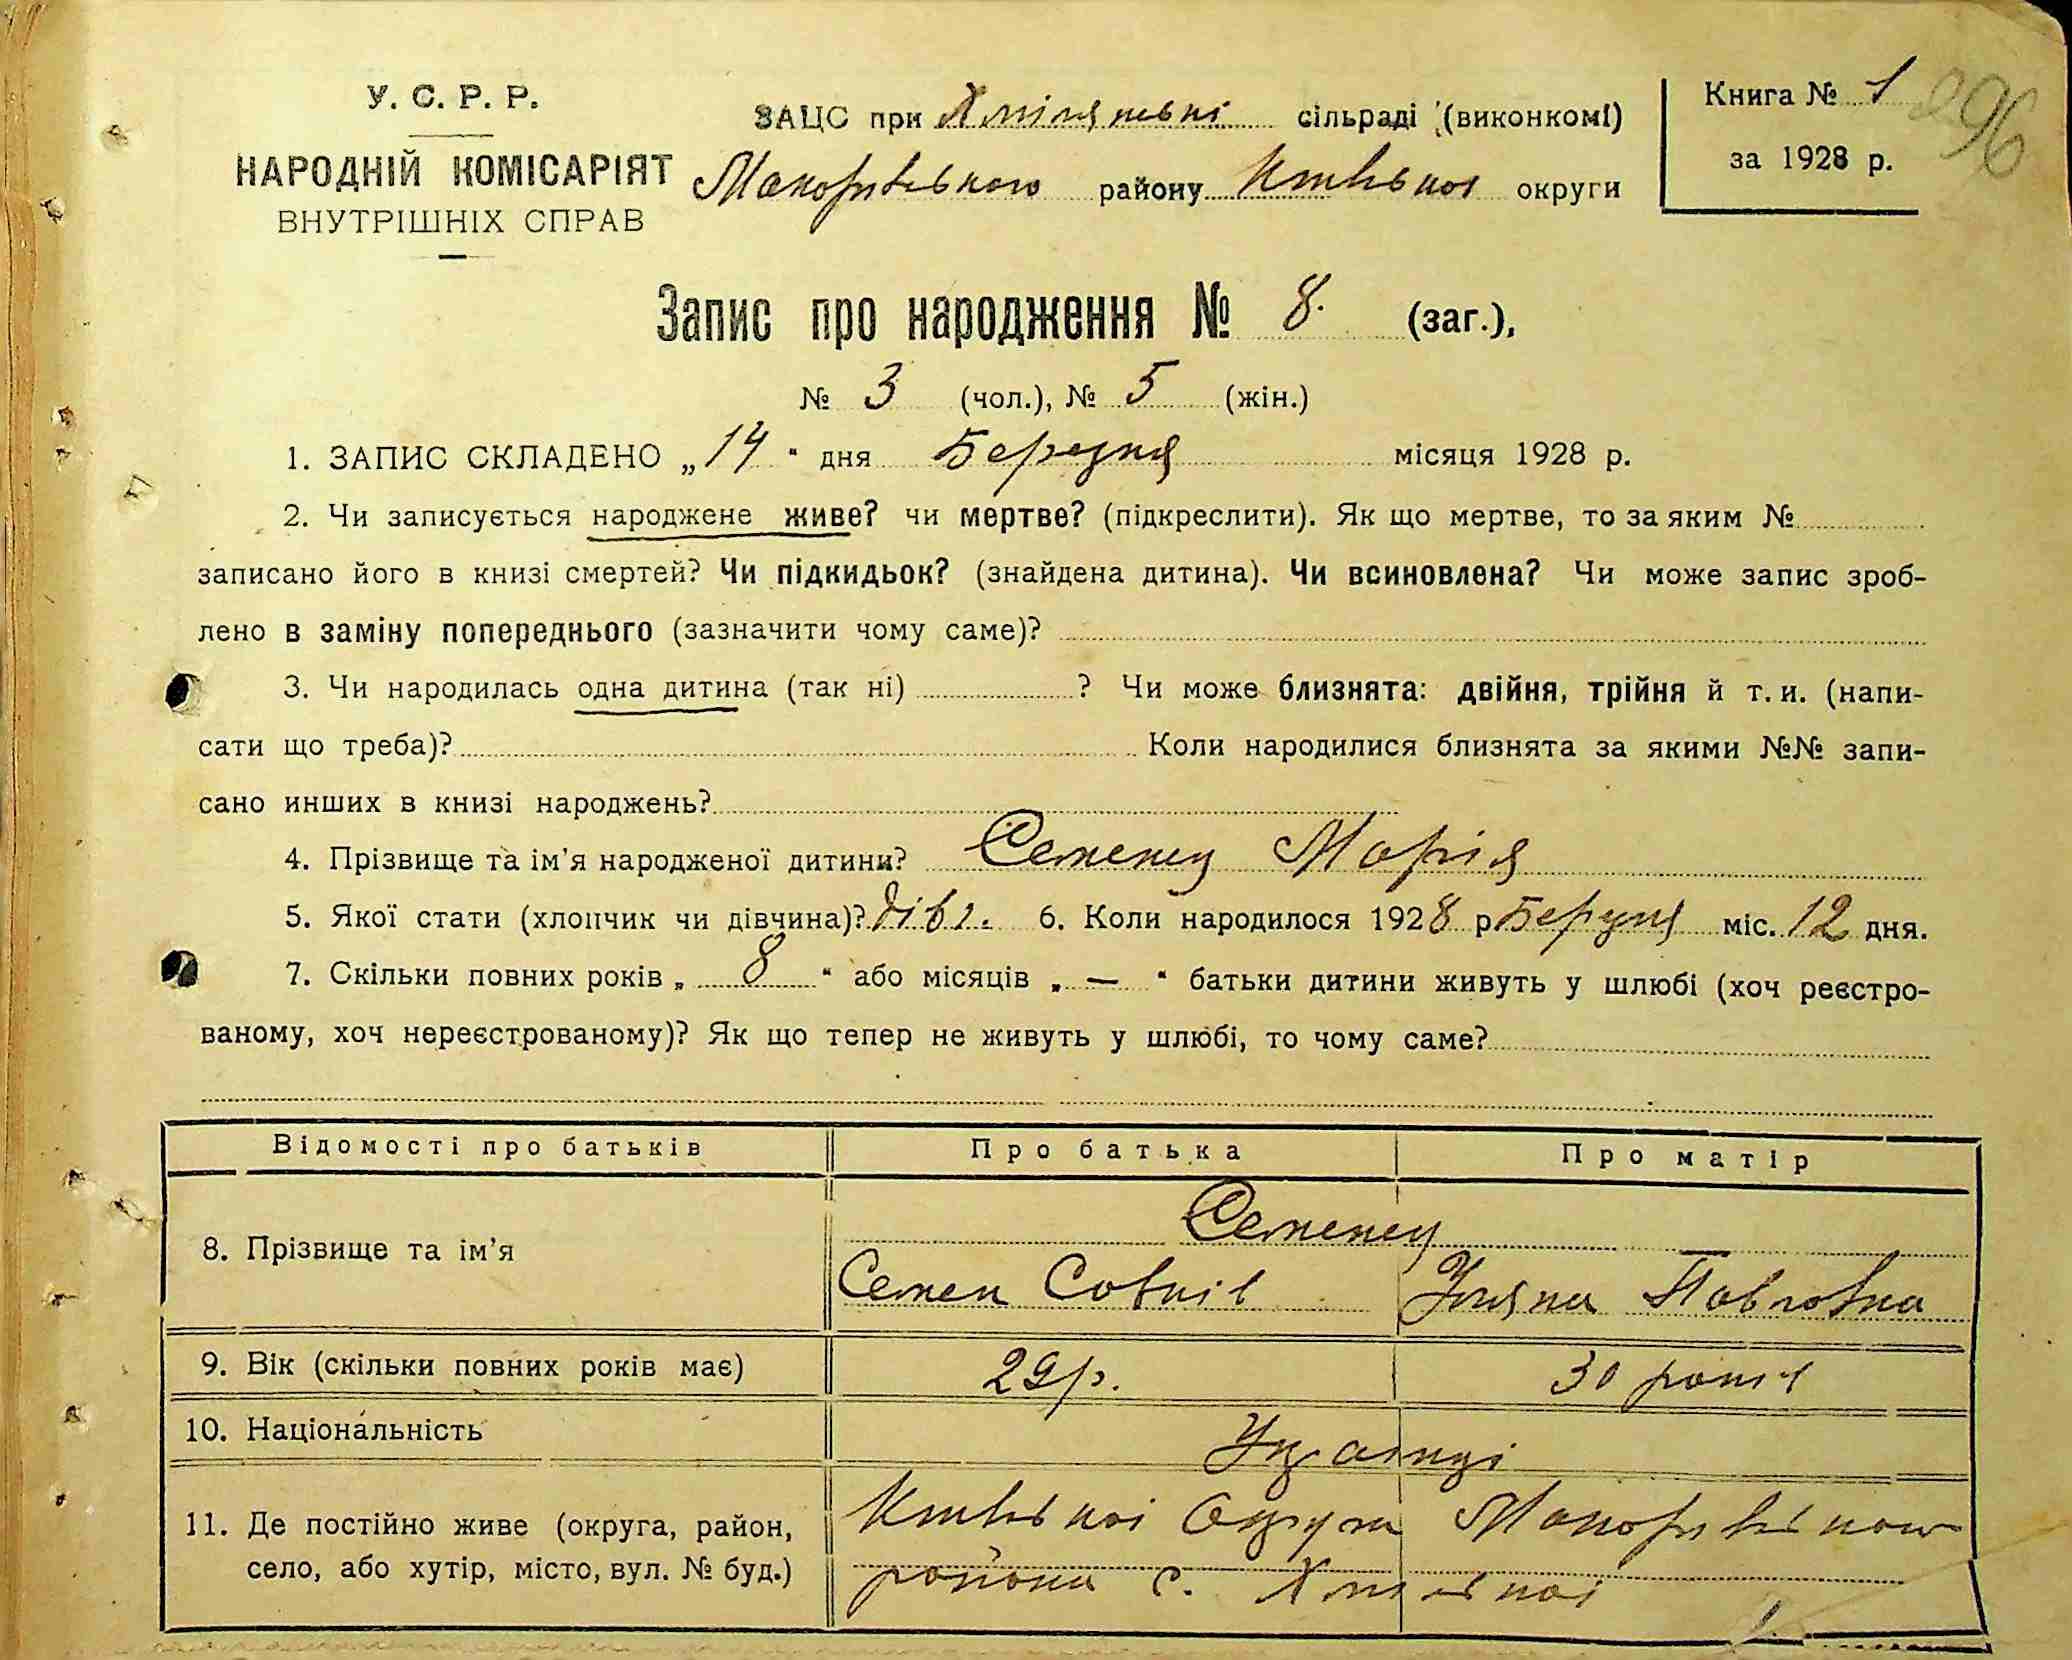 У. С. Р. Р.
НАРОДНІЙ КОМІСАРІЯТ
ВНУТРІШНІХ СПРАВ
ЗАЦС при сільраді (виконкомі)
Макарівського району Київської округи
Книга № 1
за 1928 р.
296
Запис про народження № 8. (заг.),
№ 3 (чол.), № 5 (жін.)
1. ЗАПИС СКЛАДЕНО „14“ дня Березня місяця 1928 р.
2. Чи записується народжене живе? чи мертве? (підкреслити). Як що мертве, то за яким №
записано його в книзі смертей? Чи підкидьок? (знайдена дитина). Чи всиновлена? Чи може запис зроб-
лено в заміну попереднього (зазначити чому саме)?
3. Чи народилась одна дитина (так ні) ? Чи може близнята: двійня, трійня й т. и. (напи-
сати що треба)? Коли народилися близнята за якими №№ запи-
сано инших в книзі народжень?
4. Прізвище та ім’я народженої дитини? Семенец Марія
5. Якої стати (хлопчик чи дівчина)? дівч. 6. Коли народилося 1928 р Березня міс. 12 дня.
7. Скільки повних років „ 8 “ або місяців „ — “ батьки дитини живуть у шлюбі (хоч реєстро-
ваному, хоч нереєстрованому)? Як що тепер не живуть у шлюбі, то чому саме?
Відомості про батьків Про батька Про матір
8. Прізвище та ім’я Семенец
Семен Савків Уляна Павловна
9. Вік (скільки повних років має) 29 р. 30 років
10. Національність Українці
11. Де постійно живе (округа, район,
село, або хутір, місто, вул. № буд.)
Київської Округи Макарівського
района с.